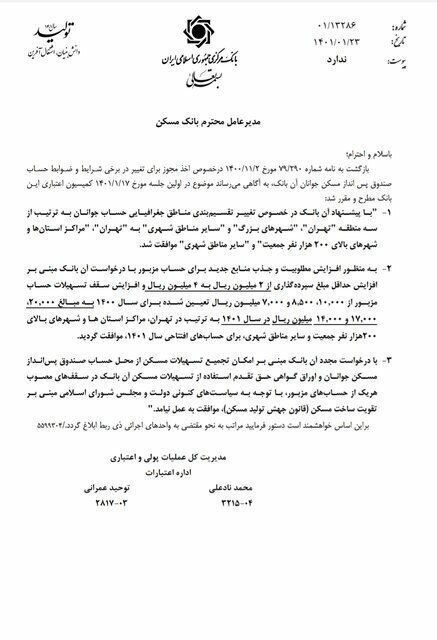 شماره: ۰۱/۱۳۲۸۶
تاریخ: ۱۴۰۱/۰۱/۲۳
پیوست: ندارد
بانک مرکزی جمهوری اسلامی ایران
بسمه تعالی
تولید
دانش‌بنیان، اشتغال‌آفرین
مدیرعامل محترم بانک مسکن
باسلام و احترام؛
بازگشت به نامه شماره ۷۹/۲۹۰ مورخ ۱۴۰۰/۱۱/۲ درخصوص اخذ مجوز برای تغییر در برخی شرایط و ضوابط حساب
صندوق پس انداز مسکن جوانان آن بانک، به آگاهی می‌رساند موضوع در اولین جلسه مورخ ۱۴۰۱/۱/۱۷ کمیسیون اعتباری این
بانک مطرح و مقرر شد:
۱- "با پیشنهاد آن بانک در خصوص تغییر تقسیم‌بندی مناطق جغرافیایی حساب جوانان به ترتیب از
سه منطقه "تهران"، "شهرهای بزرگ" و "سایر مناطق شهری" به "تهران"، "مراکز استان‌ها و
شهرهای بالای ۲۰۰ هزار نفر جمعیت" و "سایر مناطق شهری" موافقت شد.
۲- به منظور افزایش مطلوبیت و جذب منابع جدید برای حساب مزبور با درخواست آن بانک مبنی بر
افزایش حداقل مبلغ سپرده‌گذاری از ۲ میلیون ریال به ۴ میلیون ریال و افزایش سقف تسهیلات حساب
مزبور از ۱۰,۰۰۰، ۸,۵۰۰ و ۷,۰۰۰ میلیون ریال تعیین شده برای سال ۱۴۰۰ به مبالغ ۲۰,۰۰۰،
۱۷,۰۰۰ و ۱۴,۰۰۰ میلیون ریال در سال ۱۴۰۱ به ترتیب در تهران، مراکز استان ها و شهرهای بالای
۲۰۰هزار نفر جمعیت و سایر مناطق شهری، برای حساب‌های افتتاحی سال ۱۴۰۱، موافقت گردید.
۳- با درخواست مجدد آن بانک مبنی بر امکان تجمیع تسهیلات مسکن از محل حساب صندوق پس‌انداز
مسکن جوانان و اوراق گواهی حق تقدم استفاده از تسهیلات مسکن آن بانک در سقف‌های مصوب
هریک از حساب‌های مزبور، با توجه به سیاست‌های کنونی دولت و مجلس شورای اسلامی مبنی بر
تقویت ساخت مسکن (قانون جهش تولید مسکن)، موافقت به عمل نیامد."
براین اساس خواهشمند است دستور فرمایید مراتب به نحو مقتضی به واحدهای اجرائی ذی ربط ابلاغ گردد./۵۵۹۹۳۰۴
مدیریت کل عملیات پولی و اعتباری
اداره اعتبارات
محمد نادعلی
توحید عمرانی
۳۲۱۵-۰۴
۲۸۱۷-۰۳